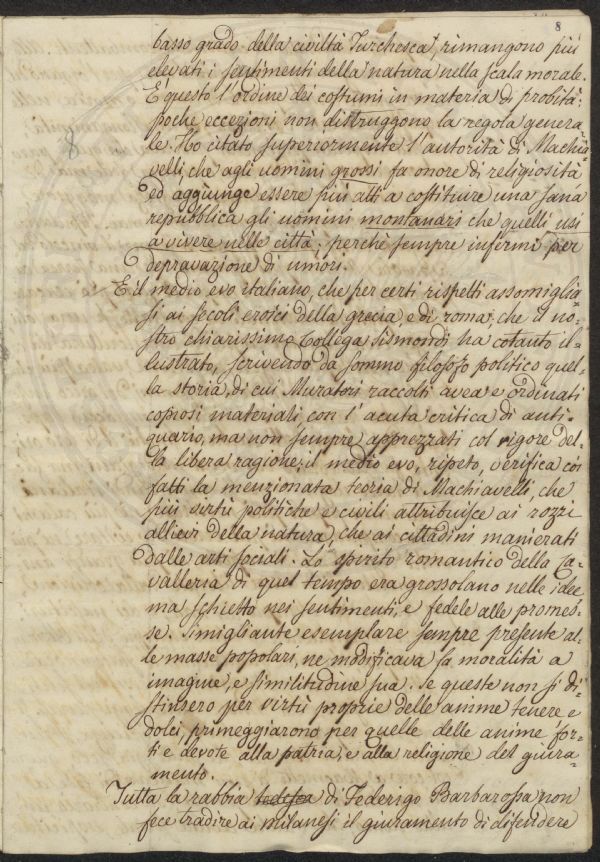 8
basso grado della civiltà Turchesca, rimangono più
elevati i sentimenti della natura nella scala morale.
E' questo l'ordine dei costumi in materia di probità:
poche eccezioni non distruggono la regola genera=
le. Ho citato superiormente l'autorità di Machia=
velli, che agli uomini grossi fa onore di religiosità
ed aggiunge essere più atti a costituire una sana
repubblica gli uomini montanari che quelli usi
a vivere nelle città; perchè sempre infermi per
depravazione di umori.
E il medio evo italiano, che per certi rispetti assomiglia=
si ai secoli eroici della grecia, e di roma; che il no=
stro chiarissimo Collega Sismondi ha cotanto il=
lustrato, scrivendo da sommo filosofo politico quel=
la storia, di cui Muratori raccolti avea e ordinati
copiosi materiali con l'acuta critica di anti=
quario, ma non sempre apprezzati col rigore del=
la libera ragione; il medio evo, ripeto, verifica coi
fatti la menzionata teoria di Machiavelli, che
più virtù politiche e civili attribuisce ai rozzi
allievi della natura, che ai cittadini manierati
dalle arti sociali. Lo spirito romantico della Ca=
valleria di quel tempo era grossolano nelle idee
ma schietto nei sentimenti, e fedele alle promes=
se. Simigliante esemplare sempre presente al=
le masse popolari, ne modificava la moralità a
imagine, e similitudine sua. Se queste non si di=
stinsero per virtù proprie delle anime tenere e
dolci, primeggiarono per quelle delle anime for=
ti e devote alla patria, e alla religione del giura=
mento.
Tutta la rabbia tedesca di Federigo Barbarossa non
fece tradire ai milanesi il giuramento di difendere
8